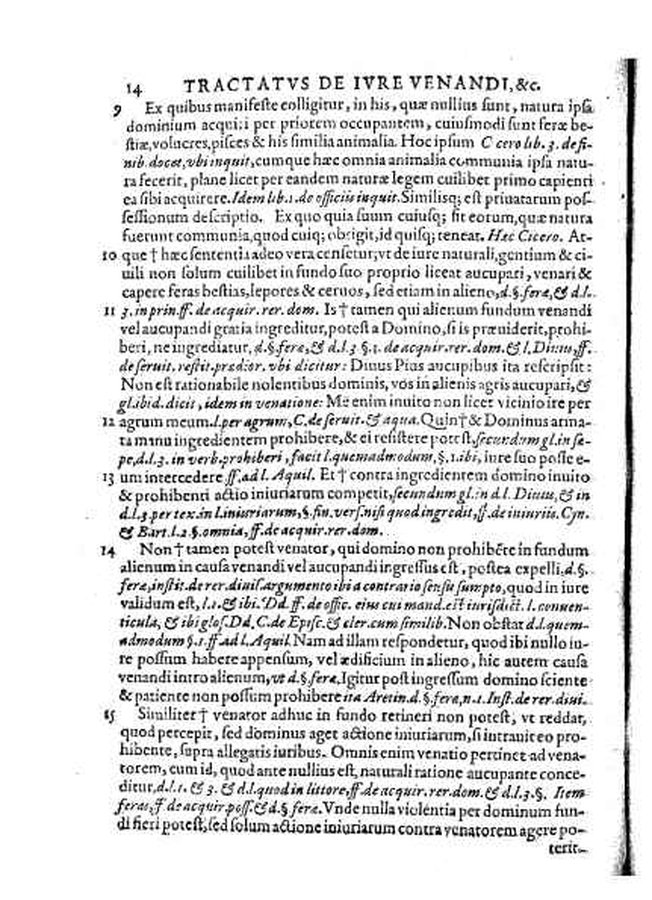 14 TRACTATVS DE IVRE VENANDI, &c.
9 Ex quibus manifeste colligitur, in his, quæ nullius sunt, natura ipsa
dominium acquiri per priorem occupantem, cuiusmodi sunt feræ be-
stiæ, volucres, pisces & his similia animalia. Hoc ipsum Cicero lib. 3. de fi-
nib. docet, vbi inquit, cumque hæc omnia animalia communia ipsa natu-
ra fecerit, plane licet per eandem naturæ legem cuilibet primo capienti
ea sibi acquirere. Idem lib. 1. de officiis inquit. Similisq; est priuatarum pos-
sessionum descriptio. Ex quo quia suum cuiusq; fit eorum, quæ natura
fuerunt communia, quod cuiq; obtigit, id quisq; teneat. Hæc Cicero. At-
10 que † hæc sententia adeo vera censetur, vt de iure naturali, gentium & ci-
uili non solum cuilibet in fundo suo proprio liceat aucupari, venari &
capere feras bestias, lepores & ceruos, sed etiam in alieno, d. §. feræ, & d. l.
11 3. in prin. ff. de acquir. rer. dom. Is † tamen qui alienum fundum venandi
vel aucupandi gratia ingreditur, potest a Domino, si is præuiderit, prohi-
beri, ne ingrediatur, d. §. feræ, & d. l. 3. §. 1. de acquir. rer. dom. & l. Diuus, ff.
de seruit. restit. præd. or. vbi dicitur: Diuus Pius aucupibus ita rescripsit:
Non est rationabile nolentibus dominis, vos in alienis agris aucupari, &
gl. ibid. dicit, idem in venatione: Me enim inuito non licet vicino ire per
12 agrum meum. l. per agrum, C. de seruit. & aqua. Quin † & Dominus arma-
ta manu ingredientem prohibere, & ei resistere potest, secundum gl. in se-
pe, d. l. 3. in verb. prohiberi, facit l. quemadmodum, §. 1. ibi, iure suo posse e-
13 um intercedere ff. ad l. Aquil. Et † contra ingredientem domino inuito
& prohibenti actio iniuriarum competit, secundum gl. in d. l. Diuus, & in
d. l. 3. per tex. in l. iniuriarum, §. fin. vers. nisi quod ingredit, ff. de iniuriis. Cyn.
& Bart. l. 2. §. omnia, ff. de acquir. rer. dom.
14 Non † tamen potest venator, qui domino non prohibēte in fundum
alienum in causa venandi vel aucupandi ingressus est, postea expelli, d. §.
feræ, instit. de rer. diuis. argumento ibi a contrario sensu sumpto, quod in iure
validum est, l. 1. & ibi. Dd. ff. de offic. eius cui mand. est iurisdict. l. conuen-
ticula, & ibi glos. Dd. C. de Episc. & cler. cum similib. Non obstat d. l. quem-
admodum §. 1. ff. ad l. Aquil. Nam ad illam respondetur, quod ibi nullo iu-
re possum habere appensum, vel ædificium in alieno, hic autem causa
venandi intro alienum, vt d. §. feræ. Igitur post ingressum domino sciente
& patiente non possum prohibere ita Aretin. d. §. feræ, n. 1. Inst. de rer. diui.
15 Similiter † venator adhuc in fundo retineri non potest, vt reddat,
quod percepit, sed dominus aget actione iniuriarum, si intrauit eo pro-
hibente, supra allegatis iuribus. Omnis enim venatio pertinet ad vena-
torem, cum id, quod ante nullius est, naturali ratione aucupante conce-
ditur, d. l. 1. & 3. & d. l. quod in littore, ff. de acquir. rer. dom. & d. l. 3. §. Item
feras, ff. de acquir. poss. & d. §. feræ. Vnde nulla violentia per dominum fun-
di fieri potest, sed solum actione iniuriarum contra venatorem agere po-
terit.